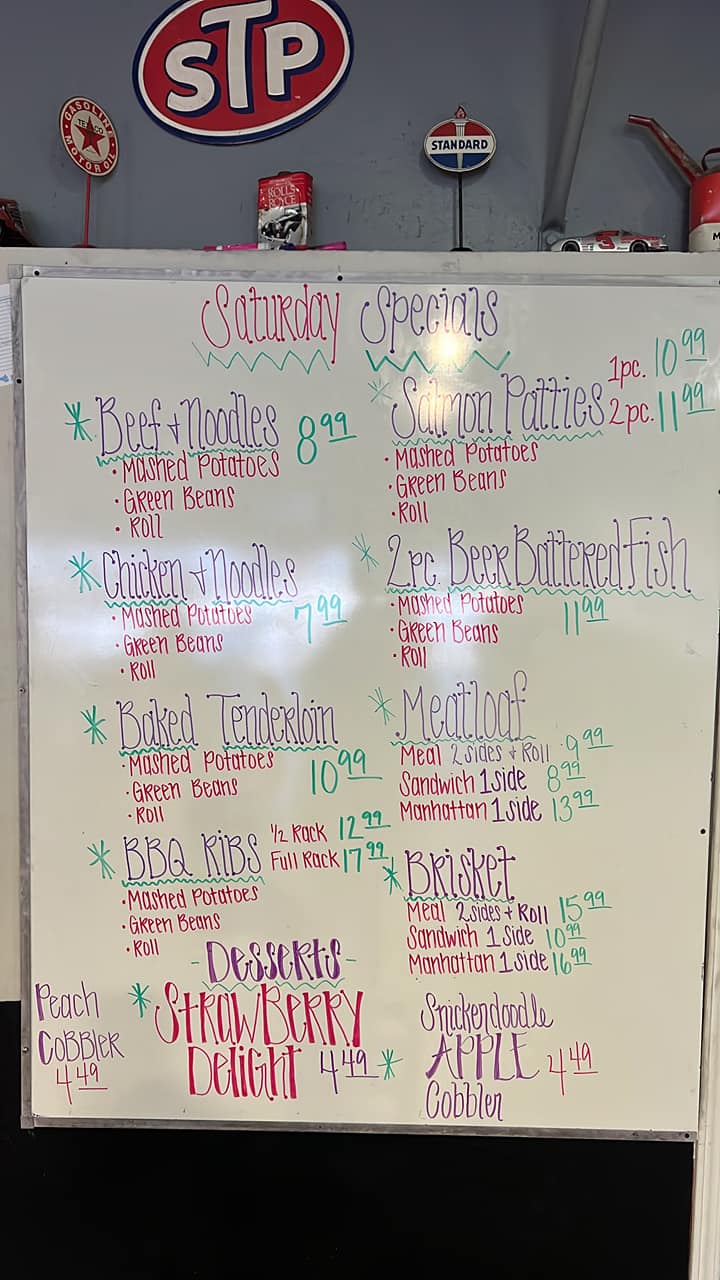 STP
GASOLINE
TEXACO
MOTOR OIL
ROLLS
ROYCE
STANDARD
3
M
Saturday Specials
* Beef + Noodles 8 99
• Mashed Potatoes
• Green Beans
• Roll
* Chicken + Noodles
• Mashed Potatoes 7 99
• Green Beans
• Roll
* Baked Tenderloin
• Mashed Potatoes 10 99
• Green Beans
• Roll
* BBQ Ribs 1/2 Rack 12 99
Full Rack 17 99
• Mashed Potatoes
• Green Beans
• Roll
* Salmon Patties 1pc. 10 99
2pc. 11 99
• Mashed Potatoes
• Green Beans
• Roll
* 2pc. Beer Battered Fish
• Mashed Potatoes 11 99
• Green Beans
• Roll
* Meatloaf
Meal 2 sides + Roll 9 99
Sandwich 1 side 8 99
Manhattan 1 side 13 99
* Brisket
Meal 2 sides + Roll 15 99
Sandwich 1 Side 10 99
Manhattan 1 side 16 99
- Desserts -
Peach
Cobbler
4 49
* Strawberry
Delight 4 49
* Snickerdoodle
APPLE 4 49
Cobbler